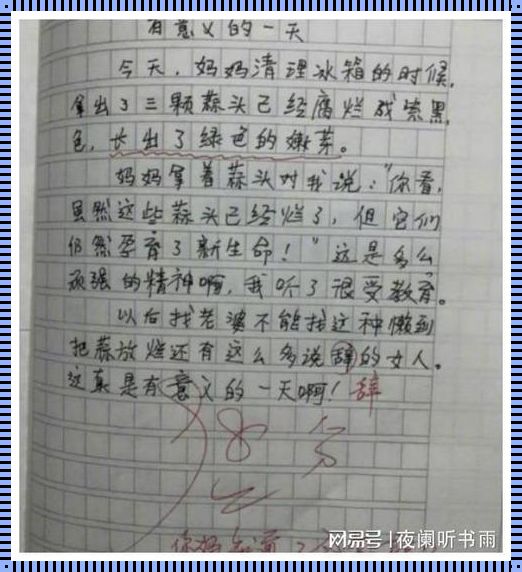 有意义的一天
今天,妈妈清理冰箱的时候,
拿出了三颗蒜头已经腐烂成紫黑
色,长出了绿色的嫩芽。
妈妈拿着蒜头对我说:“你看,
虽然这些蒜头已经烂了,但它们
仍然孕育了新生命!”这是多么
顽强的精神啊,我听了很受教育。
以后找老婆不能找这种懒到
把蒜放烂还有这么多说辞的女人。
这真是有意义的一天啊!辞
8分
你妈知道
网易号|夜阑听书雨